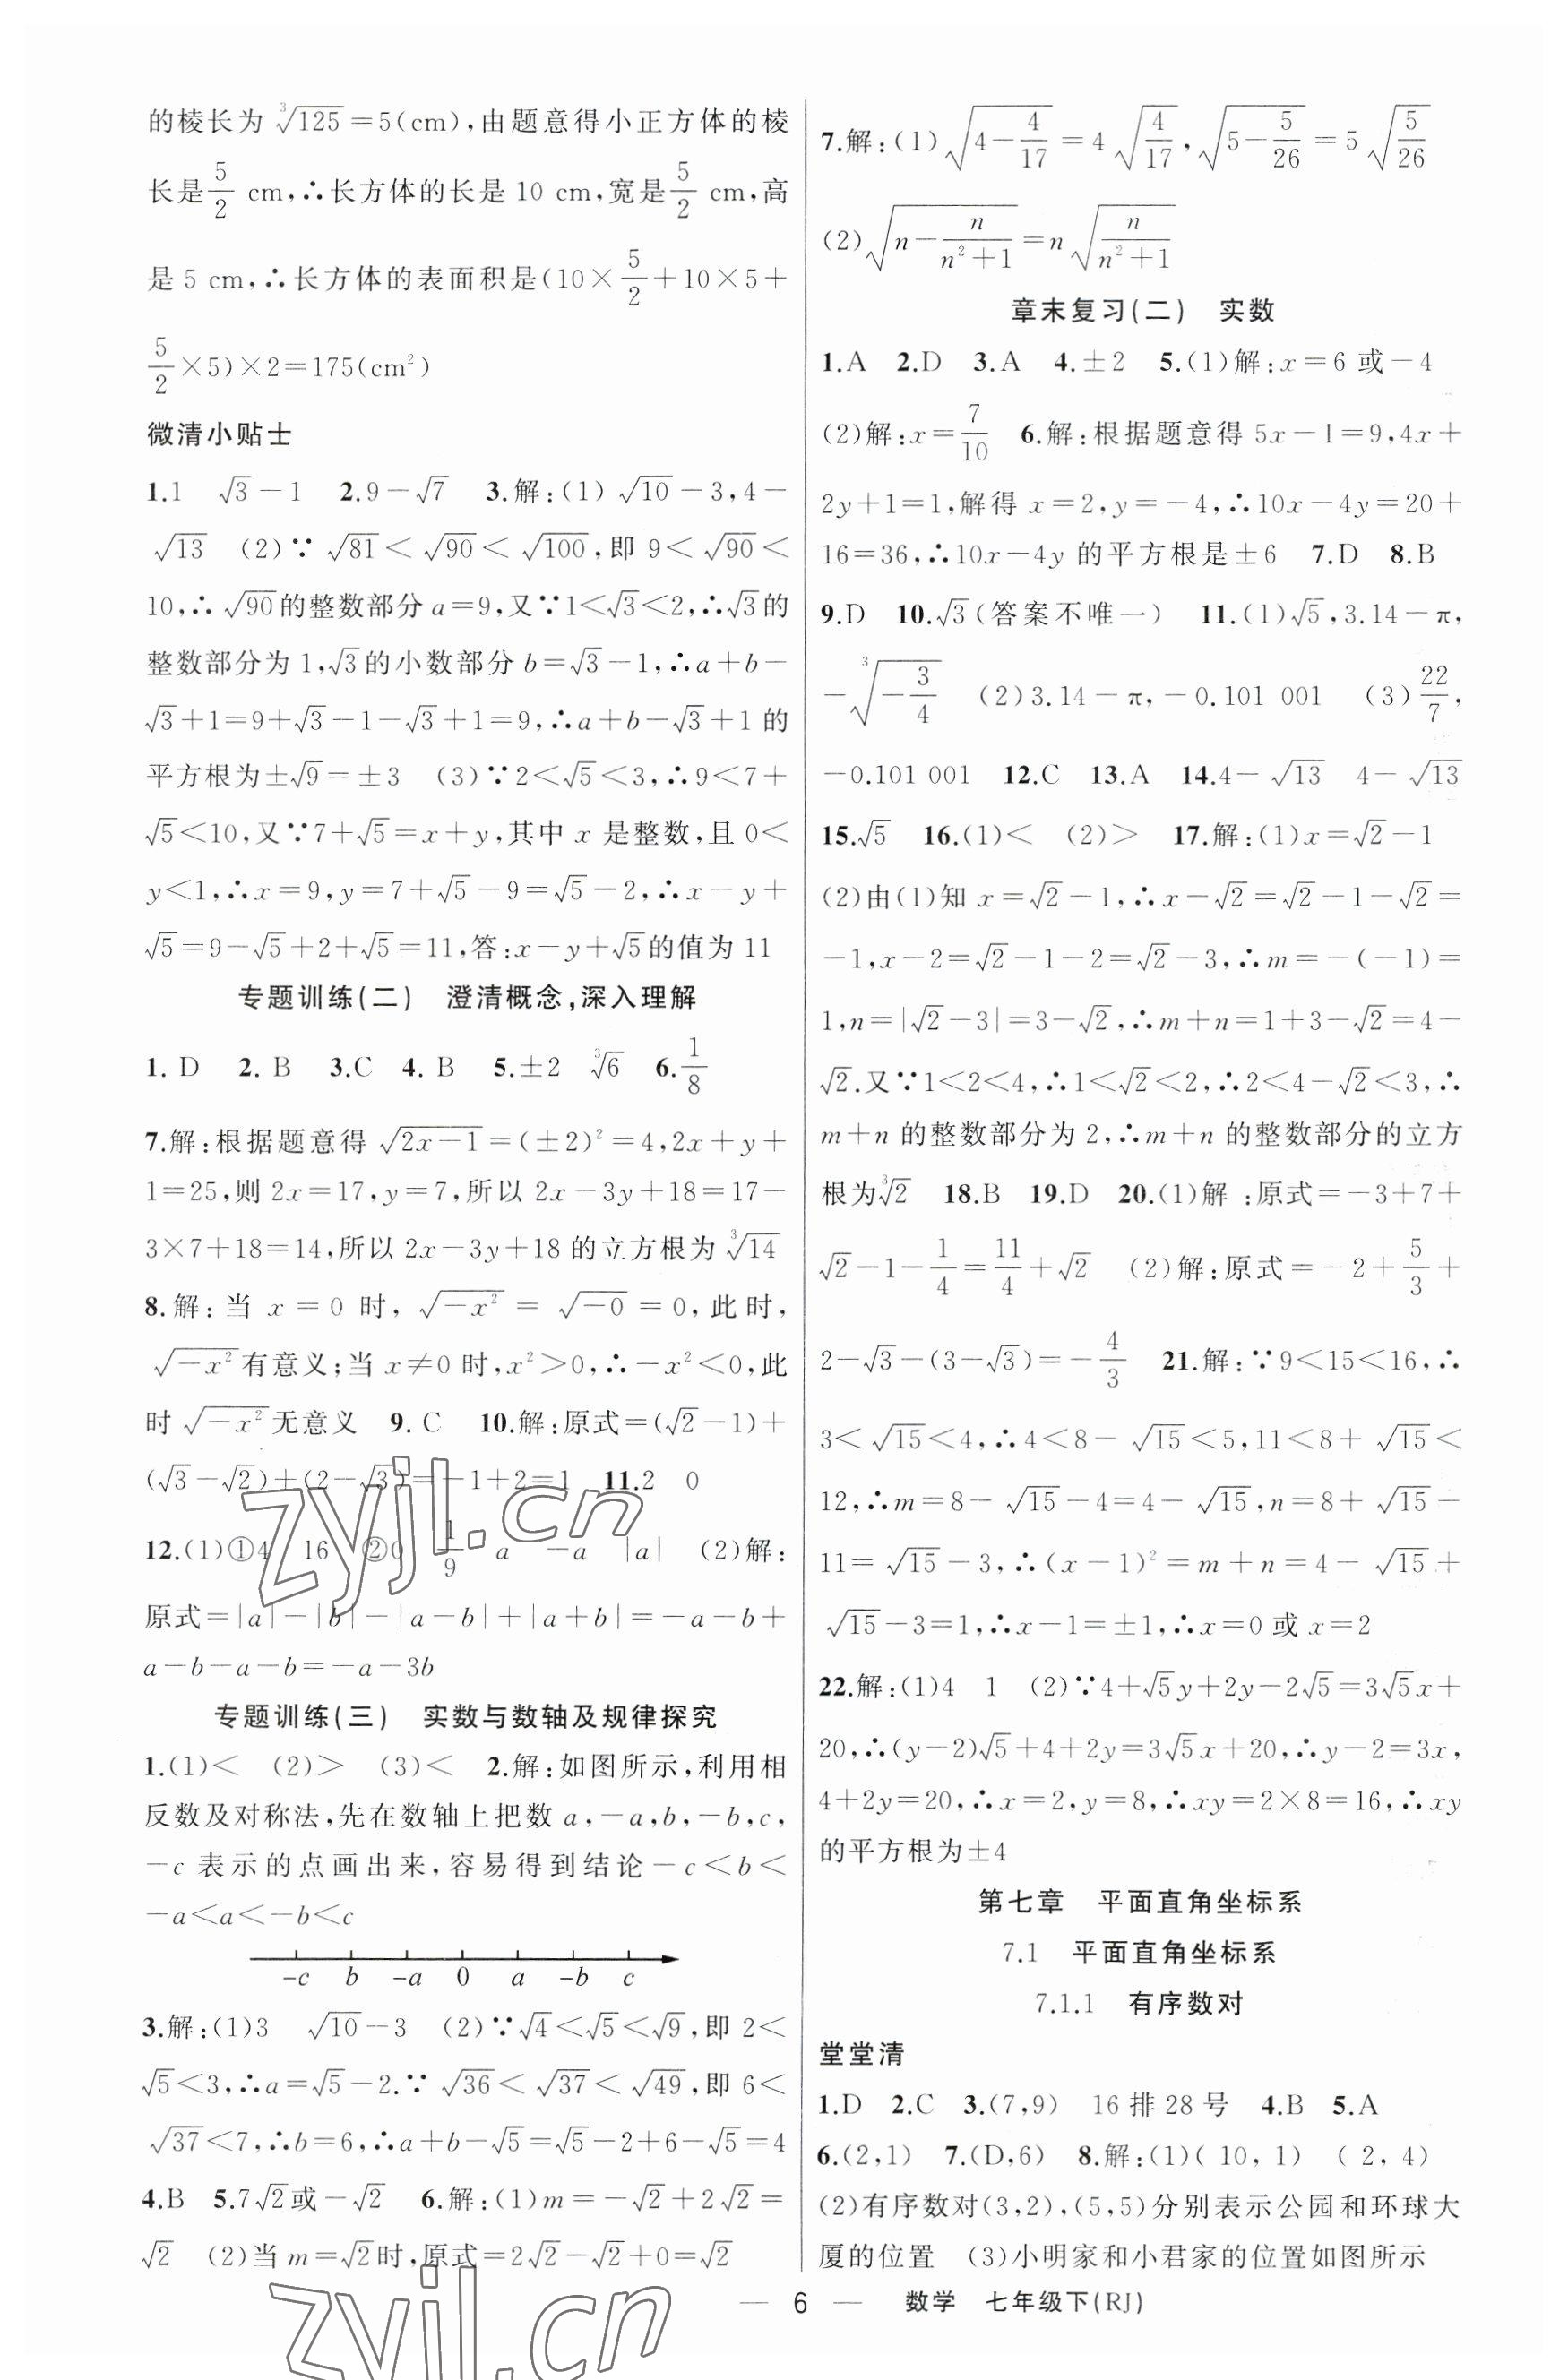 的棱长为∛125=5(cm),由题意得小正方体的棱
长是5/2 cm,∴长方体的长是 10 cm,宽是5/2 cm,高
是 5 cm,∴长方体的表面积是(10×5/2+10×5+
5/2×5)×2=175(cm²)
微清小贴士
1.1 √3-1 2.9-√7 3.解:(1) √10-3,4-
√13 (2)∵√81<√90<√100,即 9<√90<
10,∴√90的整数部分 a=9,又∵1<√3<2,∴√3的
整数部分为 1,√3的小数部分 b=√3-1,∴a+b-
√3+1=9+√3-1-√3+1=9,∴a+b-√3+1 的
平方根为±√9=±3 (3)∵2<√5<3,∴9<7+
√5<10,又∵7+√5=x+y,其中 x 是整数,且 0<
y<1,∴x=9,y=7+√5-9=√5-2,∴x-y+
√5=9-√5+2+√5=11,答:x-y+√5的值为 11
专题训练(二) 澄清概念,深入理解
1. D 2. B 3.C 4. B 5.±2 ∛6 6.1/8
7.解:根据题意得√(2x-1)=(±2)²=4,2x+y+
1=25,则 2x=17,y=7,所以 2x-3y+18=17-
3×7+18=14,所以 2x-3y+18 的立方根为∛14
8.解:当 x=0 时,√(-x²)=√(-0)=0,此时,
√(-x²)有意义;当 x≠0 时,x²>0,∴-x²<0,此
时√(-x²)无意义 9. C 10.解:原式=(√2-1)+
(√3-√2)+(2-√3)=-1+2=1 11.2 0
12.(1)①4 16 ②0 1/9 a -a |a| (2)解:
原式=|a|-|b|-|a-b|+|a+b|=-a-b+
a-b-a-b=-a-3b
专题训练(三) 实数与数轴及规律探究
1.(1)< (2)> (3)< 2.解:如图所示,利用相
反数及对称法,先在数轴上把数 a,-a,b,-b,c,
-c 表示的点画出来,容易得到结论-c<b<
-a<a<-b<c
-c b -a 0 a -b c
3.解:(1)3 √10-3 (2)∵√4<√5<√9,即 2<
√5<3,∴a=√5-2.∵√36<√37<√49,即 6<
√37<7,∴b=6,∴a+b-√5=√5-2+6-√5=4
4.B 5.7√2或-√2 6.解:(1)m=-√2+2√2=
√2 (2)当 m=√2时,原式=2√2-√2+0=√2
7.解:(1)√(4-4/17)=4√(4/17),√(5-5/26)=5√(5/26)
(2)√(n-n/(n²+1))=n√(n/(n²+1))
章末复习(二) 实数
1.A 2.D 3.A 4.±2 5.(1)解:x=6 或-4
(2)解:x=7/10 6.解:根据题意得 5x-1=9,4x+
2y+1=1,解得 x=2,y=-4,∴10x-4y=20+
16=36,∴10x-4y 的平方根是±6 7.D 8.B
9.D 10.√3(答案不唯一) 11.(1)√5,3.14-π,
-∛(-3/4) (2)3.14-π,-0.101 001 (3)22/7,
-0.101 001 12.C 13.A 14.4-√13 4-√13
15.√5 16.(1)< (2)> 17.解:(1)x=√2-1
(2)由(1)知 x=√2-1,∴x-√2=√2-1-√2=
-1,x-2=√2-1-2=√2-3,∴m=-(-1)=
1,n=|√2-3|=3-√2,∴m+n=1+3-√2=4-
√2.又∵1<2<4,∴1<√2<2,∴2<4-√2<3,∴
m+n 的整数部分为 2,∴m+n 的整数部分的立方
根为∛2 18.B 19.D 20.(1)解:原式=-3+7+
√2-1-1/4=11/4+√2 (2)解:原式=-2+5/3+
2-√3-(3-√3)=-4/3 21.解:∵9<15<16,∴
3<√15<4,∴4<8-√15<5,11<8+√15<
12,∴m=8-√15-4=4-√15,n=8+√15-
11=√15-3,∴(x-1)²=m+n=4-√15+
√15-3=1,∴x-1=±1,∴x=0 或 x=2
22.解:(1)4 1 (2)∵4+√5y+2y-2√5=3√5x+
20,∴(y-2)√5+4+2y=3√5x+20,∴y-2=3x,
4+2y=20,∴x=2,y=8,∴xy=2×8=16,∴xy
的平方根为±4
第七章 平面直角坐标系
7.1 平面直角坐标系
7.1.1 有序数对
堂堂清
1.D 2.C 3.(7,9) 16 排 28 号 4.B 5.A
6.(2,1) 7.(D,6) 8.解:(1)( 10, 1) ( 2, 4)
(2)有序数对(3,2),(5,5)分别表示公园和环球大
厦的位置 (3)小明家和小君家的位置如图所示
— 6 — 数学 七年级下(RJ)
zyjl.cn
zyjl.cn